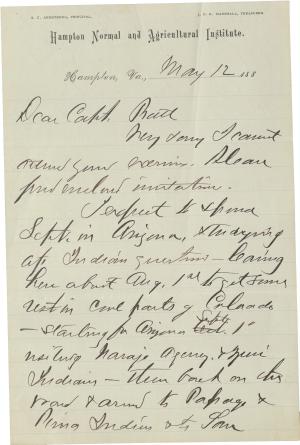 S. C. ARMSTRONG, PRINCIPAL. J. F. B. MARSHALL, TREASURER.
Hampton Normal and Agricultural Institute.
Hampton, Va., May 12 188
Dear Capt. Pratt
Very sorry I cannot
attend your evening. Please
find enclosed invitation.
I expect to spend
Sept. in Arizona, studying
up Indian question – leaving
here about Aug. 1st to get some
rest in cool parts of Colorado
– starting for Arizona Sept. 1st
visiting Navajo Agency & Zuni
Indians – then back on the
road & around to Papago &
Pima Indians & to San